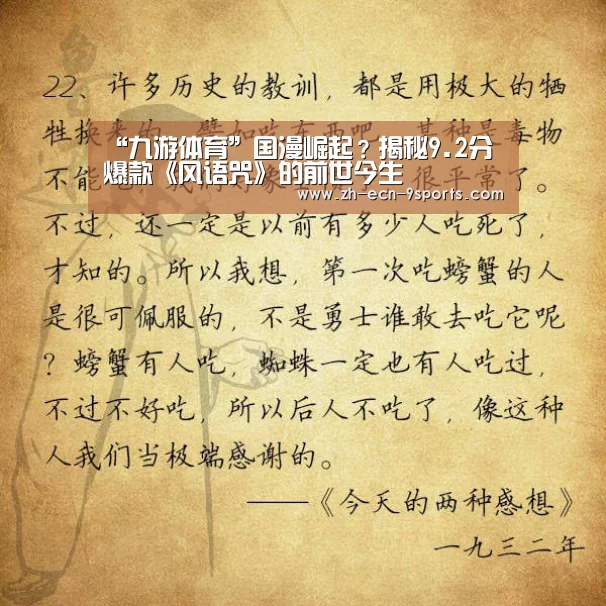 22、许多历史的教训，都是用极大的牺
牲换来的。譬如吃东西吧，某种是毒物
“九游体育”国漫崛起？揭秘9.2分
爆款《风语咒》的前世今生
www.zh-ecn-9sports.com
不能
很平常了。
不过，还一定是以前有多少人吃死了，
才知的。所以我想，第一次吃螃蟹的人
是很可佩服的，不是勇士谁敢去吃它呢
？螃蟹有人吃，蜘蛛一定也有人吃过，
不过不好吃，所以后人不吃了，像这种
人我们当极端感谢的。
——《今天的两种感想》
一九三二年